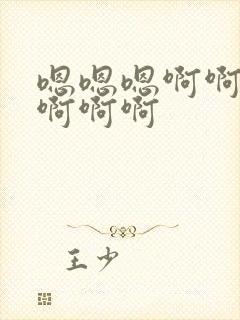 嗯嗯嗯啊啊
啊啊啊
王少